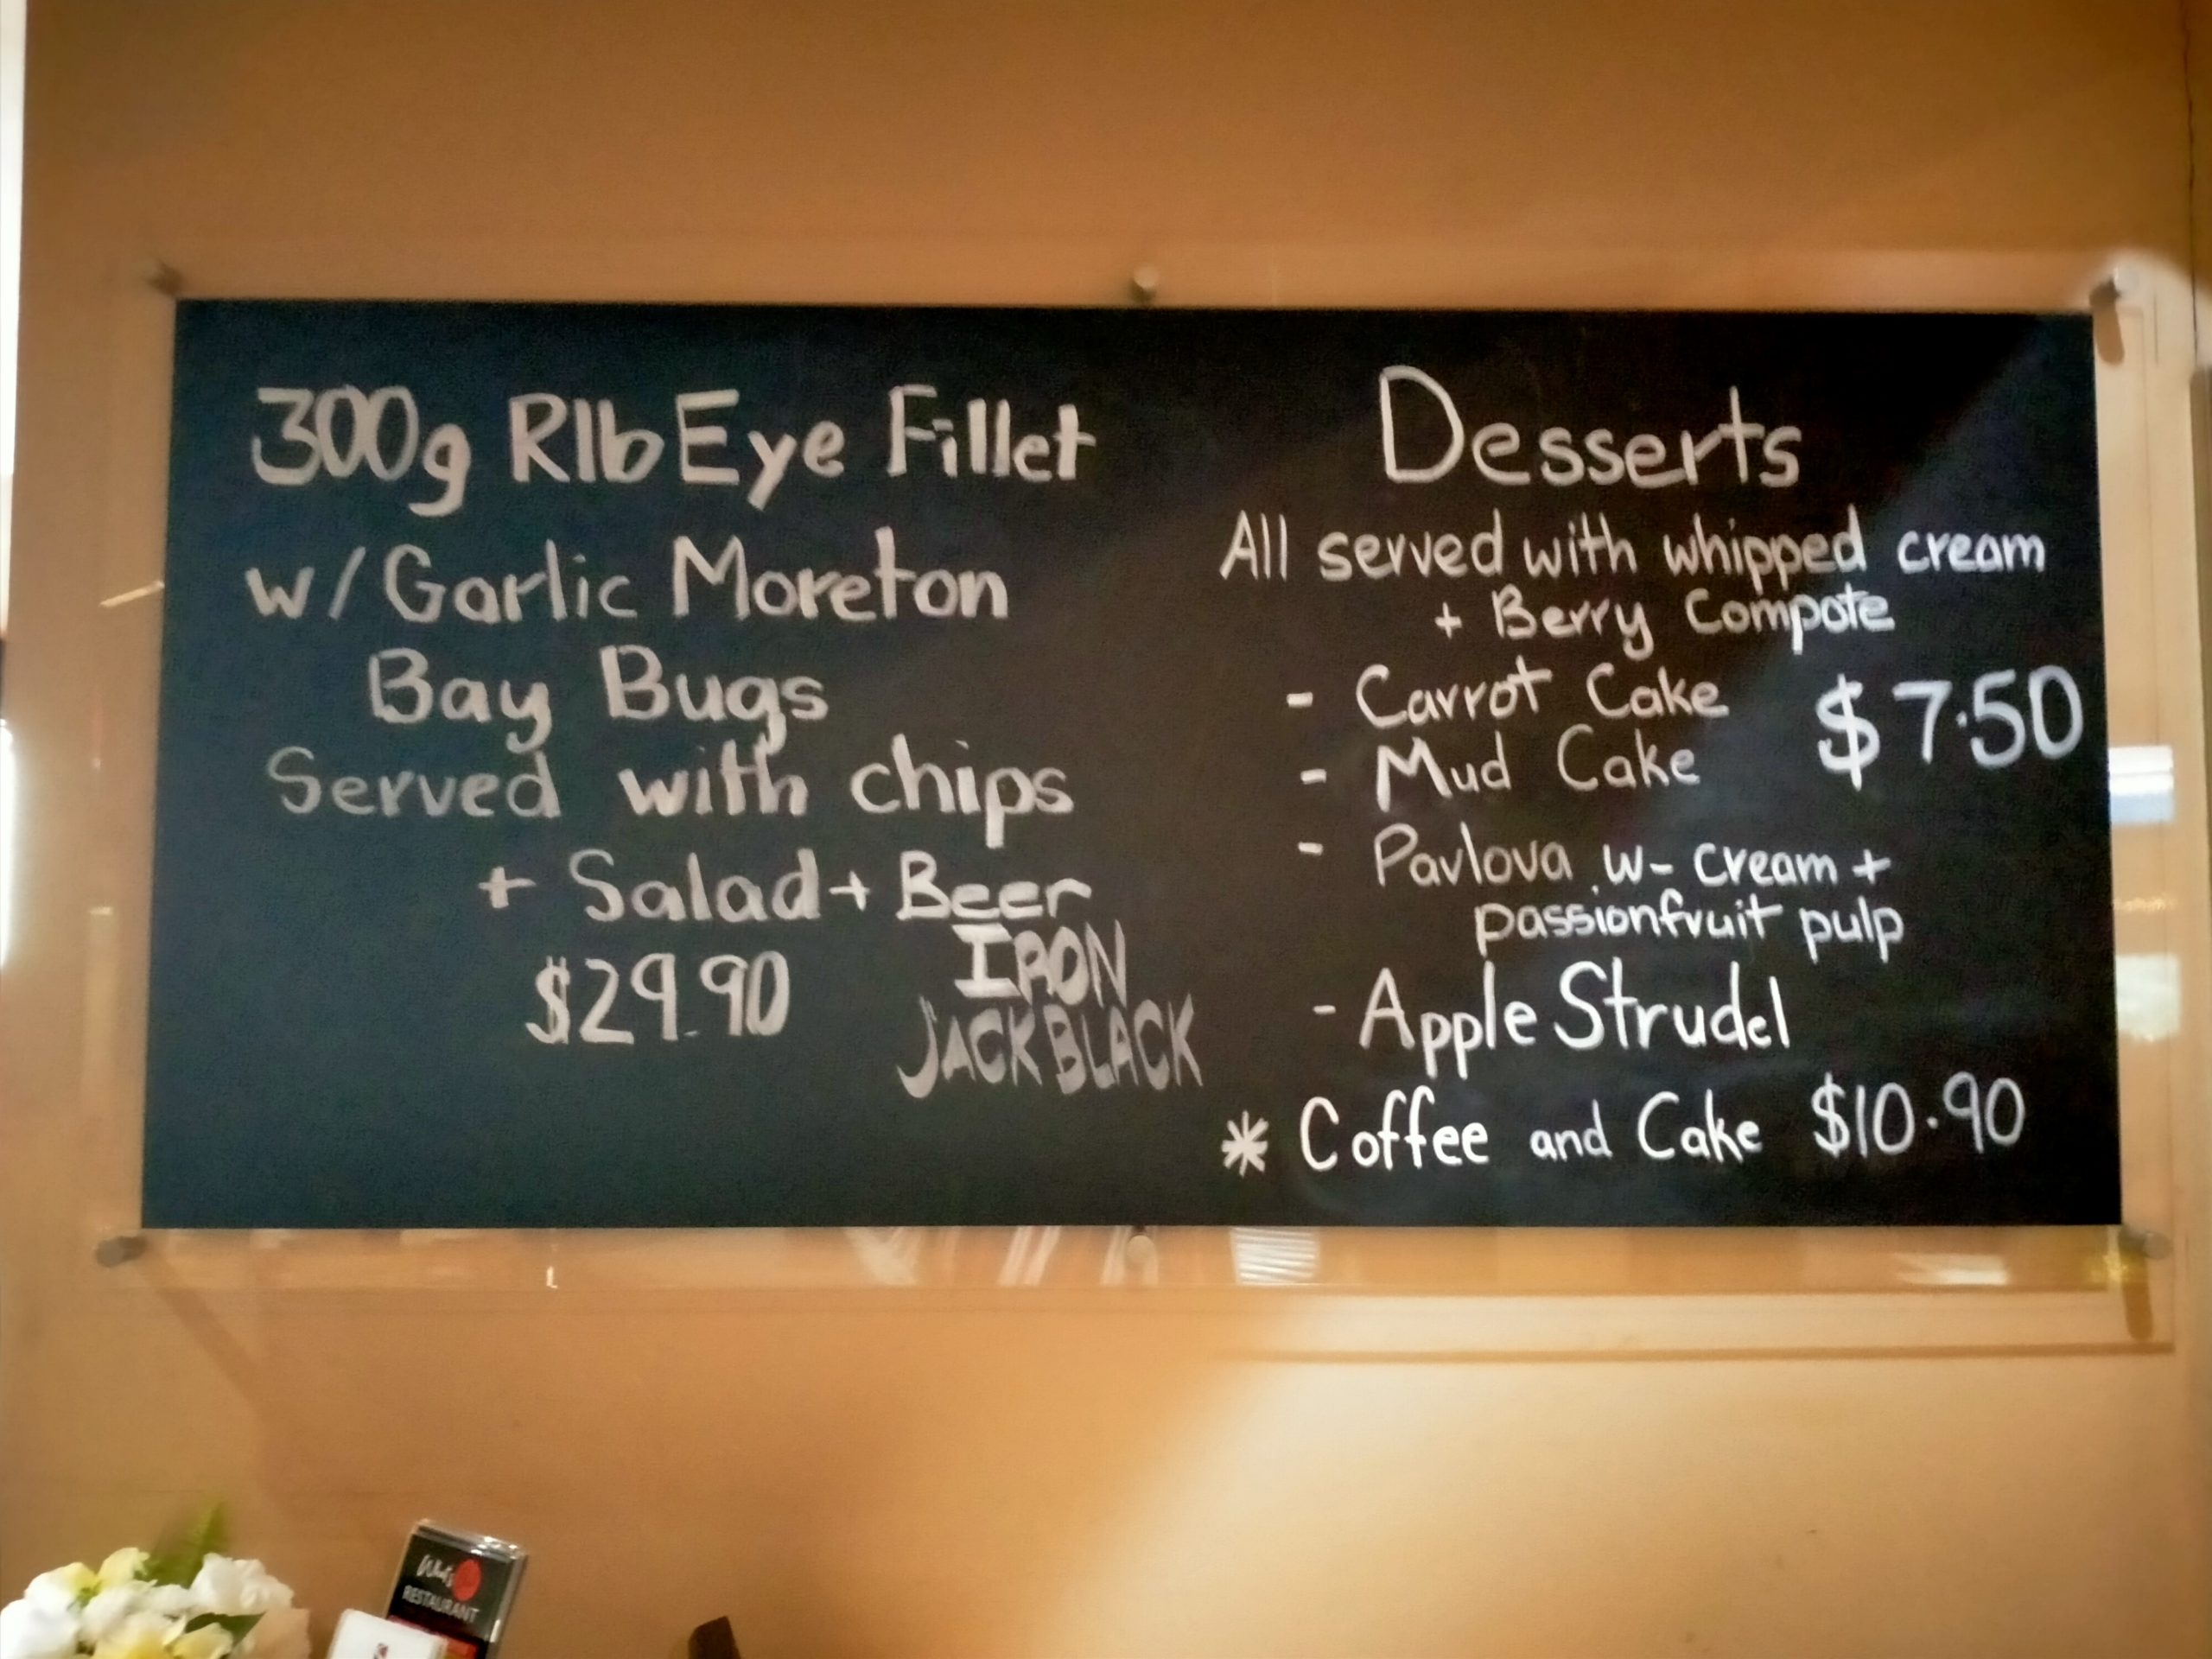 300g RIb Eye Fillet
w/ Garlic Moreton
Bay Bugs
Served with chips
+ Salad + Beer
$29.90
IRON
JACK BLACK
Desserts
All served with whipped cream
+ Berry Compote
- Carrot Cake
- Mud Cake
$7.50
- Pavlova w- cream +
passionfruit pulp
- Apple Strudel
* Coffee and Cake $10.90
RESTAURANT